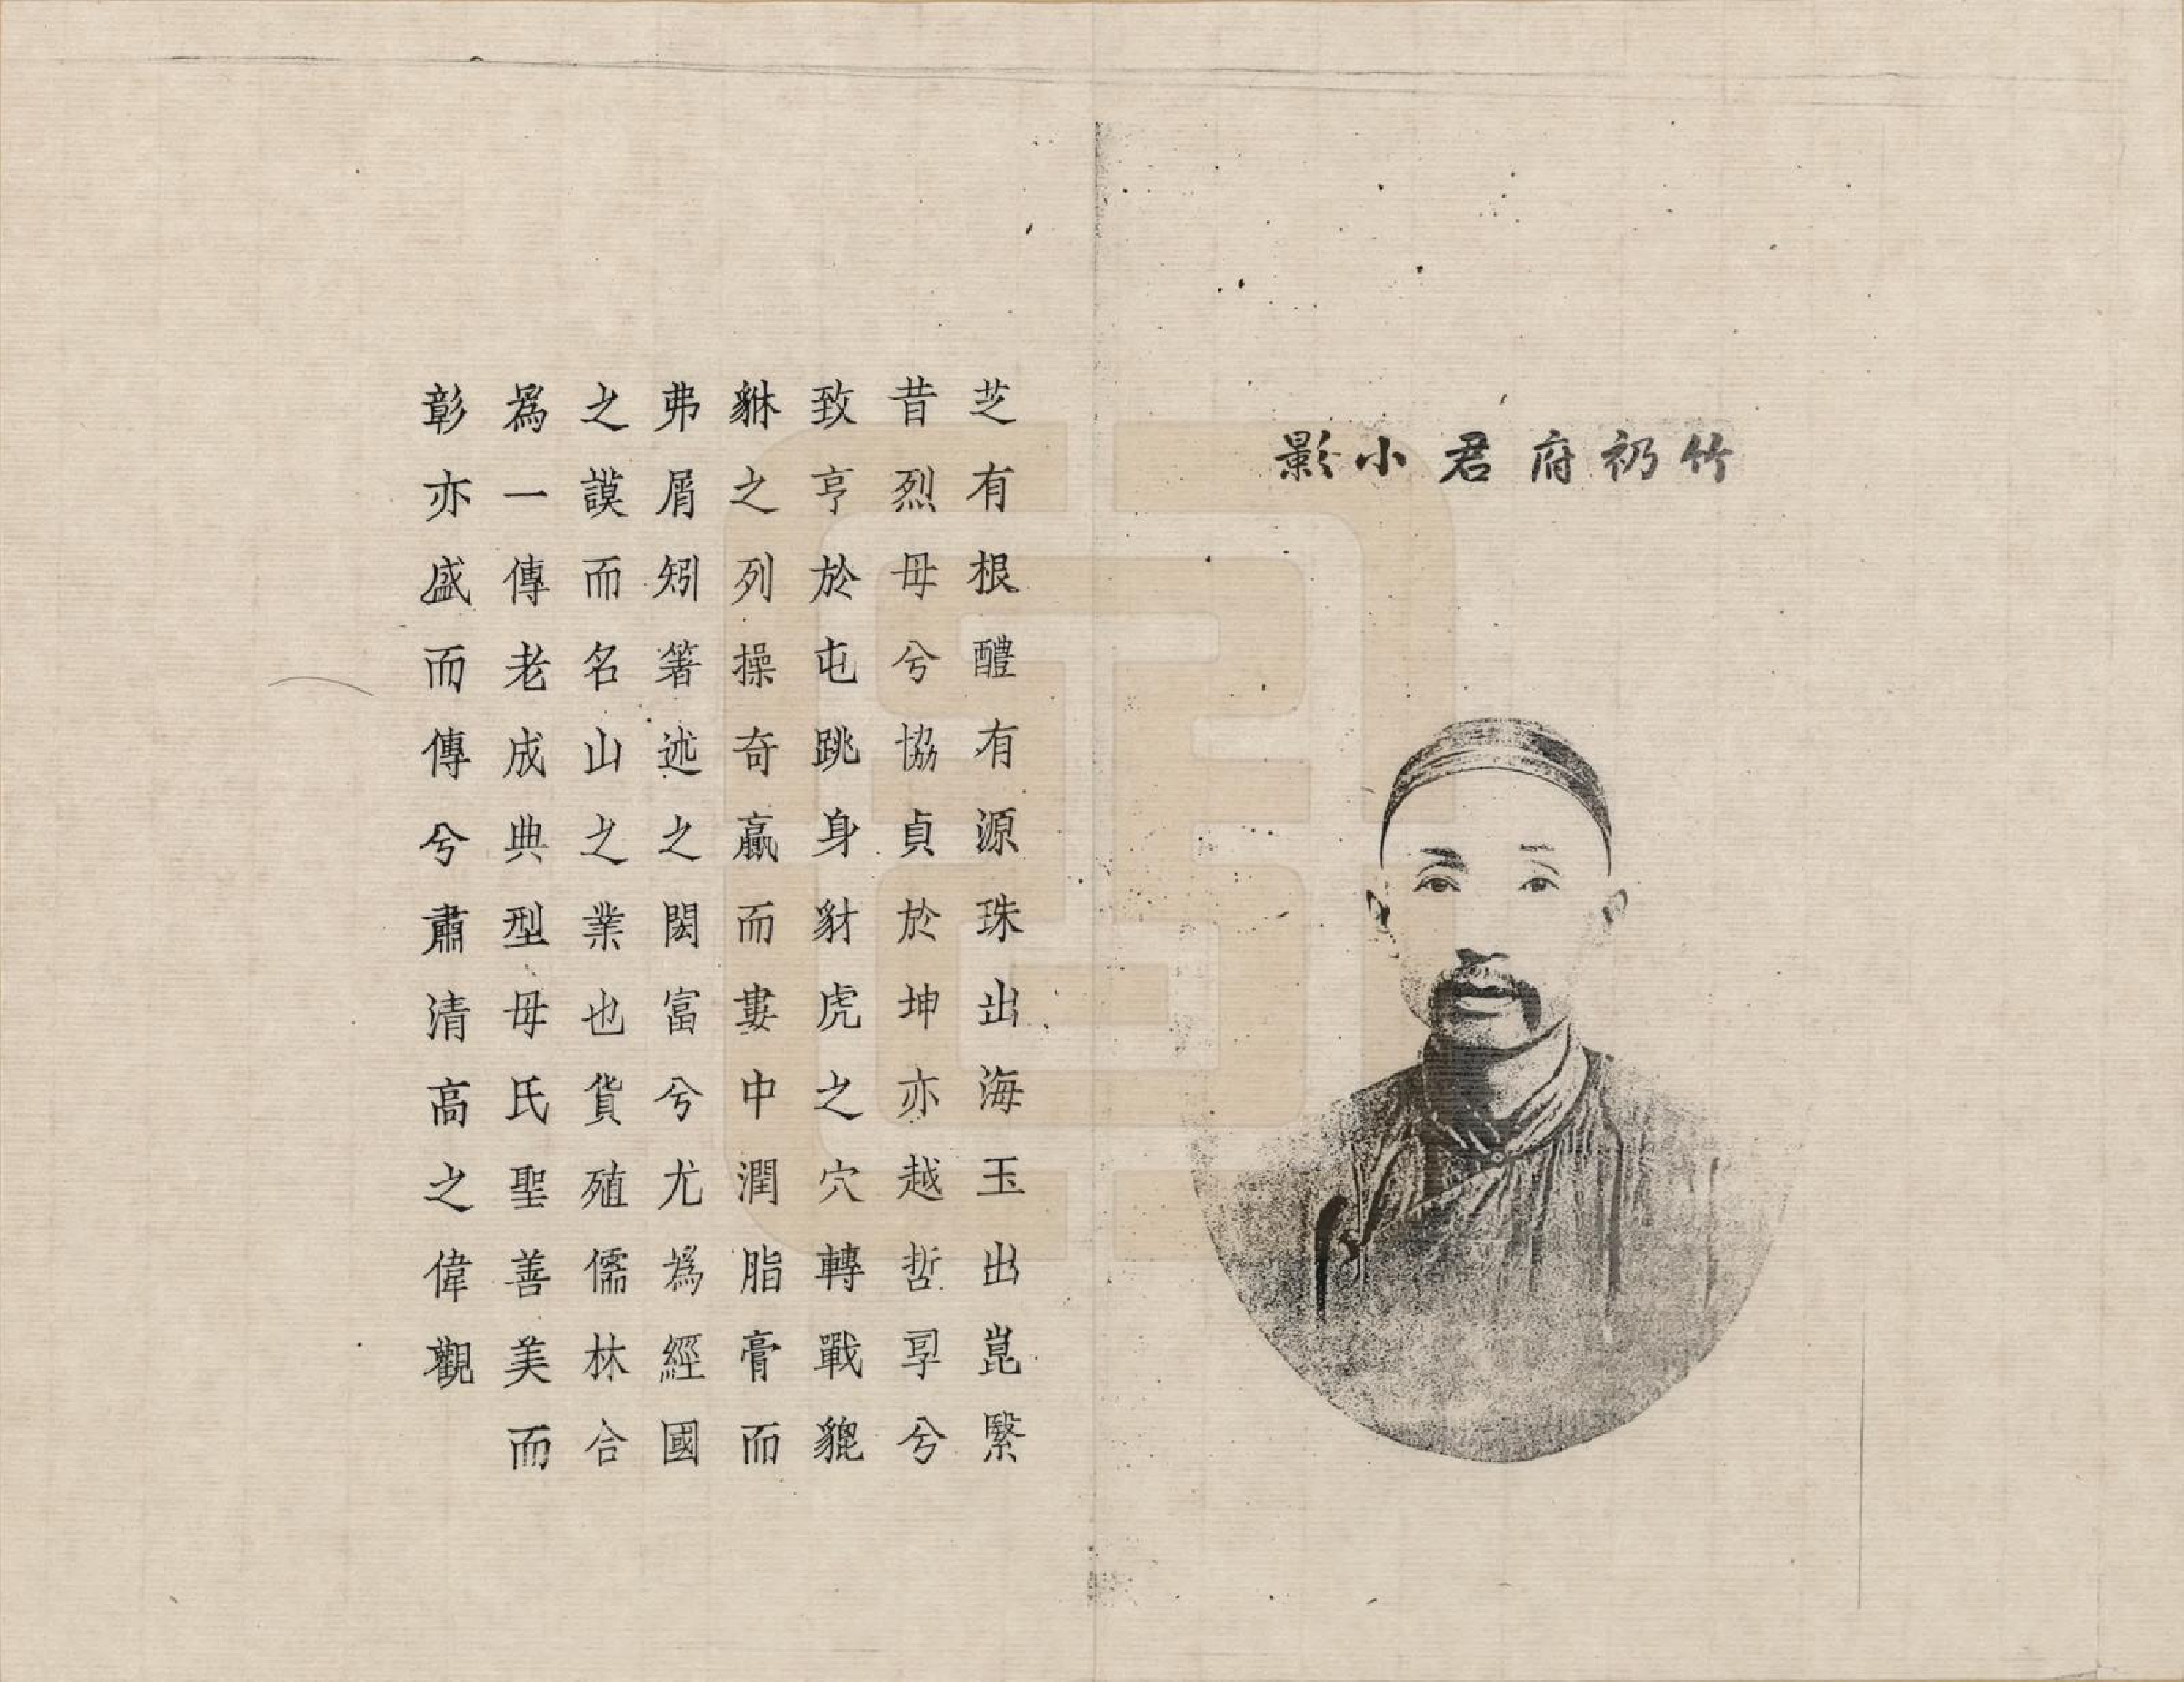 竹礽府君小影
芝有根醴有源珠出海玉出崑繄
昔烈毋兮協貞於坤亦越哲㝈兮
致亨於屯跳身豺虎之穴轉戰貔
貅之列操奇贏而婁中潤脂膏而
弗屑矧箸述之閎富兮尤為經國
之謨而名山之業也貨殖儒林合
為一傳老成典型毋氏聖善美而
彰亦盛而傳兮肅清高之偉觀